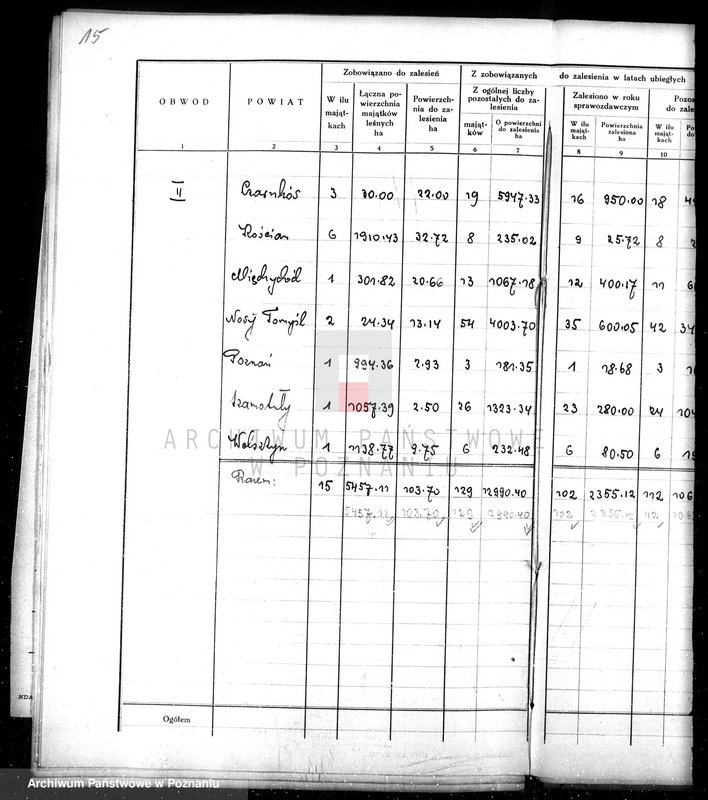 15
Zobowiązano do zalesień Z zobowiązanych do zalesienia w latach ubiegłych
OBWÓD POWIAT W ilu mająt-kach Łączna po-wierzchnia majątków leśnych ha Powierzch-nia do za-lesienia ha Z ogólnej liczby pozostałych do za-lesienia Zalesiono w roku sprawozdawczym
mająt-ków O powierzchni do zalesienia ha W ilu mająt-kach Powierzchnia zalesiona ha W ilu mająt-kach
1 2 3 4 5 6 7 8 9 10
II Czarnków 3 30.00 22.00 19 5947.33 16 950.00 18
Kościan 6 1910.43 32.72 8 235.02 9 25.72 8
Międzychód 1 301.82 20.66 13 1067.18 12 400.17 11
Nowy Tomyśl 2 24.34 13.14 54 4003.70 35 600.05 42
Poznań 1 994.36 2.93 3 181.35 1 18.68 3
Szamotuły 1 1057.39 2.50 26 1323.34 23 280.00 24
Wolsztyn 1 1138.77 9.75 6 232.48 6 80.50 6
Razem: 15 5457.11 103.70 129 12990.40 102 2355.12 112
5457.11 103.70 129 12990.40 102 2355.12 112
ARCHIWUM PAŃSTWOWE
W POZNANIU
NDA
Ogółem
Archiwum Państwowe w Poznaniu